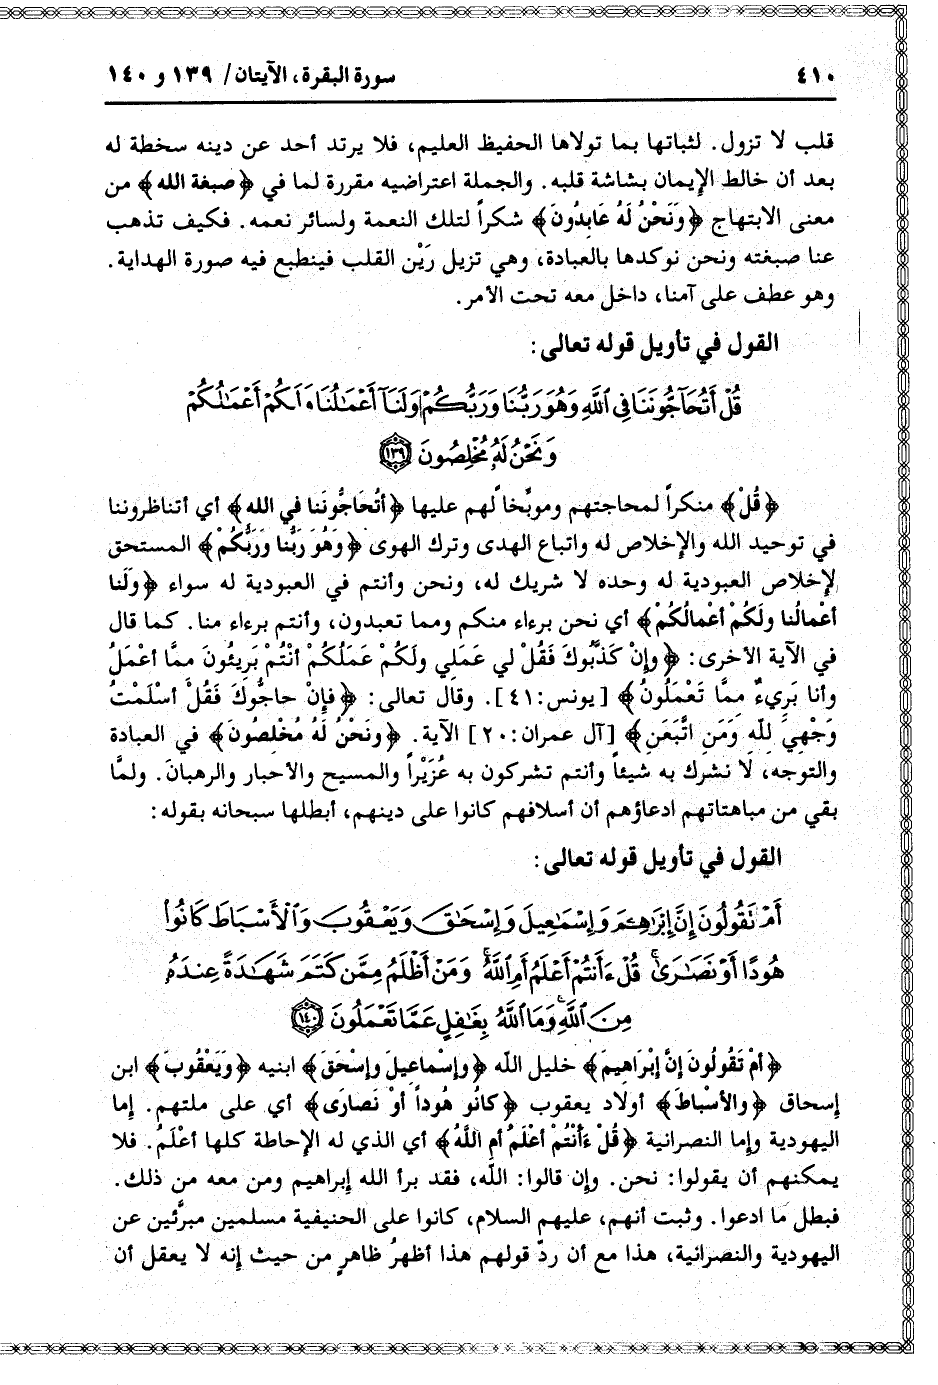 ٤١٠
سورة البقرة، الآيتان/ ١٣٩ و ١٤٠
قلب لا تزول. لثباتها بما تولاها الحفيظ العليم، فلا يرتد أحد عن دينه سخطة له
بعد أن خالط الإيمان بشاشة قلبه. والجملة اعتراضيه مقررة لما في ﴿صبغة الله﴾ من
معنى الابتهاج ﴿وَنَحْنُ لَهُ عَابِدُونَ﴾ شكراً لتلك النعمة ولسائر نعمه. فكيف تذهب
عنا صبغته ونحن نوكدها بالعبادة، وهي تزيل رَيْن القلب فينطبع فيه صورة الهداية.
وهو عطف على آمنا، داخل معه تحت الأمر.
القول في تأويل قوله تعالى:
قُلْ أَتُحَآجُّونَنَا فِى ٱللَّهِ وَهُوَ رَبُّنَا وَرَبُّكُمْ وَلَنَآ أَعْمَـٰلُنَا وَلَكُمْ أَعْمَـٰلُكُمْ
وَنَحْنُ لَهُۥ مُخْلِصُونَ ١٣٩
﴿قُلْ﴾ منكراً لمحاجتهم وموبِّخاً لهم عليها ﴿أتُحَاجُّونَنا في الله﴾ أي أتناظروننا
في توحيد الله والإخلاص له واتباع الهدى وترك الهوى ﴿وهُوَ رَبُّنا ورَبُّكُمْ﴾ المستحق
لإخلاص العبودية له وحده لا شريك له، ونحن وأنتم في العبودية له سواء ﴿ولَنا
أعْمالُنا ولَكُمْ أعْمالُكُمْ﴾ أي نحن برءاء منكم ومما تعبدون، وأنتم برءاء منا. كما قال
في الآية الأخرى: ﴿وإنْ كَذَّبُوكَ فَقُلْ لي عَمَلي ولَكُمْ عَمَلُكُمْ أنْتُمْ بَرِيئُونَ ممَّا أعْمَلُ
وأنا بَرِيءٌ ممَّا تَعْمَلُونُ﴾ [يونس:٤١]. وقال تعالى: ﴿فإنْ حاجُّوكَ فَقُلْ أسْلَمْتُ
وَجْهِيَ لِلّهِ وَمَنِ اتَّبَعَنِ﴾ [آل عمران:٢٠] الآية. ﴿ونَحْنُ لَهُ مُخْلِصُونَ﴾ في العبادة
والتوجه، لَا نشرك به شيئاً وأنتم تشركون به عُزَيْراً والمسيح والأحبار والرهبان. ولمَّا
بقي من مباهتاتهم ادعاؤهم أن أسلافهم كانوا على دينهم، أبطلها سبحانه بقوله:
القول في تأويل قوله تعالى:
أَمْ تَقُولُونَ إِنَّ إِبْرَٰهِـۧمَ وَإِسْمَـٰعِيلَ وَإِسْحَـٰقَ وَيَعْقُوبَ وَٱلْأَسْبَاطَ كَانُوا۟
هُودًا أَوْ نَصَـٰرَىٰ ۗ قُلْ ءَأَنتُمْ أَعْلَمُ أَمِ ٱللَّهُ ۗ وَمَنْ أَظْلَمُ مِمَّن كَتَمَ شَهَـٰدَةً عِندَهُۥ
مِنَ ٱللَّهِ ۗ وَمَا ٱللَّهُ بِغَـٰفِلٍ عَمَّا تَعْمَلُونَ ١٤٠
﴿أمْ تَقُولُونَ إنَّ إبْرَاهِيمَ﴾ خليل اللّه ﴿وإسْماعيلَ وإسْحَقَ﴾ ابنيه ﴿ويَعْقُوبَ﴾ ابن
إسحاق ﴿والأسْباطَ﴾ أولاد يعقوب ﴿كانُو هُوداً أوْ نَصارَى﴾ أي على ملتهم. إما
اليهودية وإما النصرانية ﴿قُلْ ءَأنْتُمْ أعْلَمُ أمِ اللَّهُ﴾ أي الذي له الإحاطة كلها أعْلَمُ. فلا
يمكنهم أن يقولوا: نحن. وإن قالوا: اللّه، فقد برأ الله إبراهيم ومن معه من ذلك.
فبطل ما ادعوا. وثبت أنهم، عليهم السلام، كانوا على الحنيفية مسلمين مبرَّئين عن
اليهودية والنصرانية، هذا مع أن ردّ قولهم هذا أظهرُ ظاهرٍ من حيث إنه لا يعقل أن